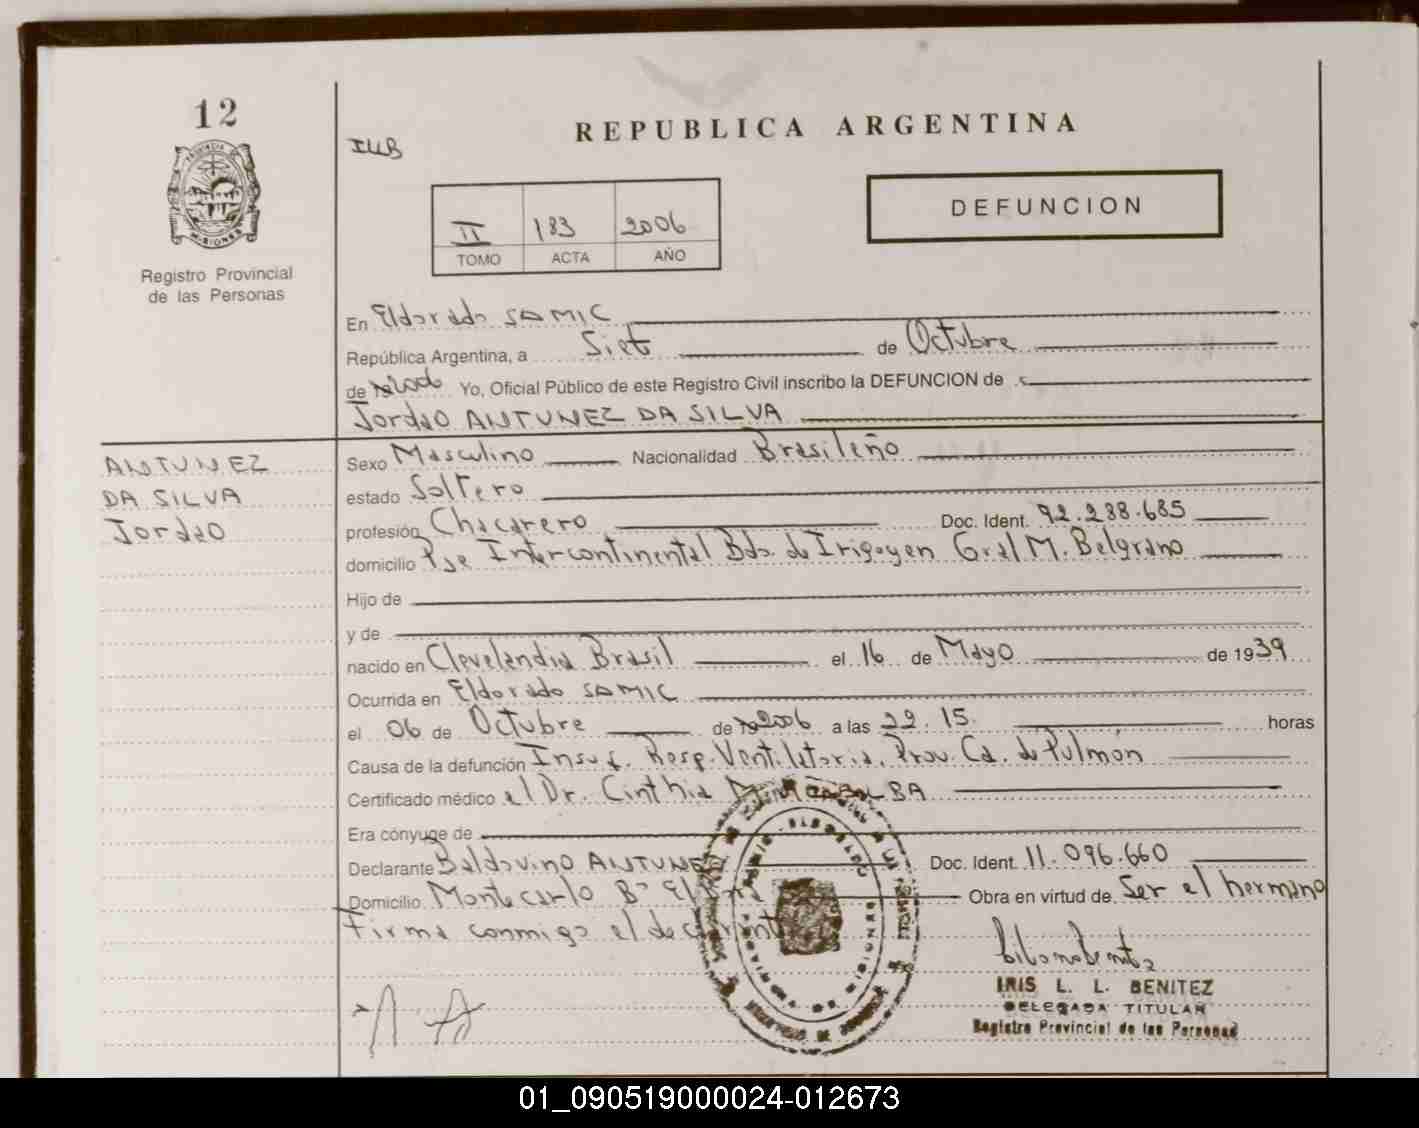 12
REPUBLICA ARGENTINA
ILLB
DEFUNCION
II 183 2006
TOMO ACTA AÑO
Registro Provincial
de las Personas
En Eldorado SAMIC
República Argentina, a Siete de Octubre
de 2006 Yo, Oficial Público de este Registro Civil inscribo la DEFUNCION de
Jordao ANTUNEZ DA SILVA
ANTUNEZ
DA SILVA
Jordao
Sexo Masculino Nacionalidad Brasileño
estado Soltero
profesión Chacarero Doc. Ident. 92.288.685
domicilio Pje Intercontinental Bdo. de Irigoyen Gral M. Belgrano
Hijo de
y de
nacido en Clevelandia Brasil el 16 de Mayo de 1939
Ocurrida en Eldorado SAMIC
el 06 de Octubre de 2006 a las 22.15. horas
Causa de la defunción Insuf. Resp. Ventilatoria. Prov. Ca. de Pulmón
Certificado médico el Dr. Cinthia
Era cónyuge de
Declarante Baldovino ANTUNEZ Doc. Ident. 11.096.660
Domicilio Montecarlo Bº Obra en virtud de Ser el hermano
Firma conmigo el declarante
IRIS L. L. BENITEZ
DELEGADA TITULAR
Registro Provincial de las Personas
01_090519000024-012673